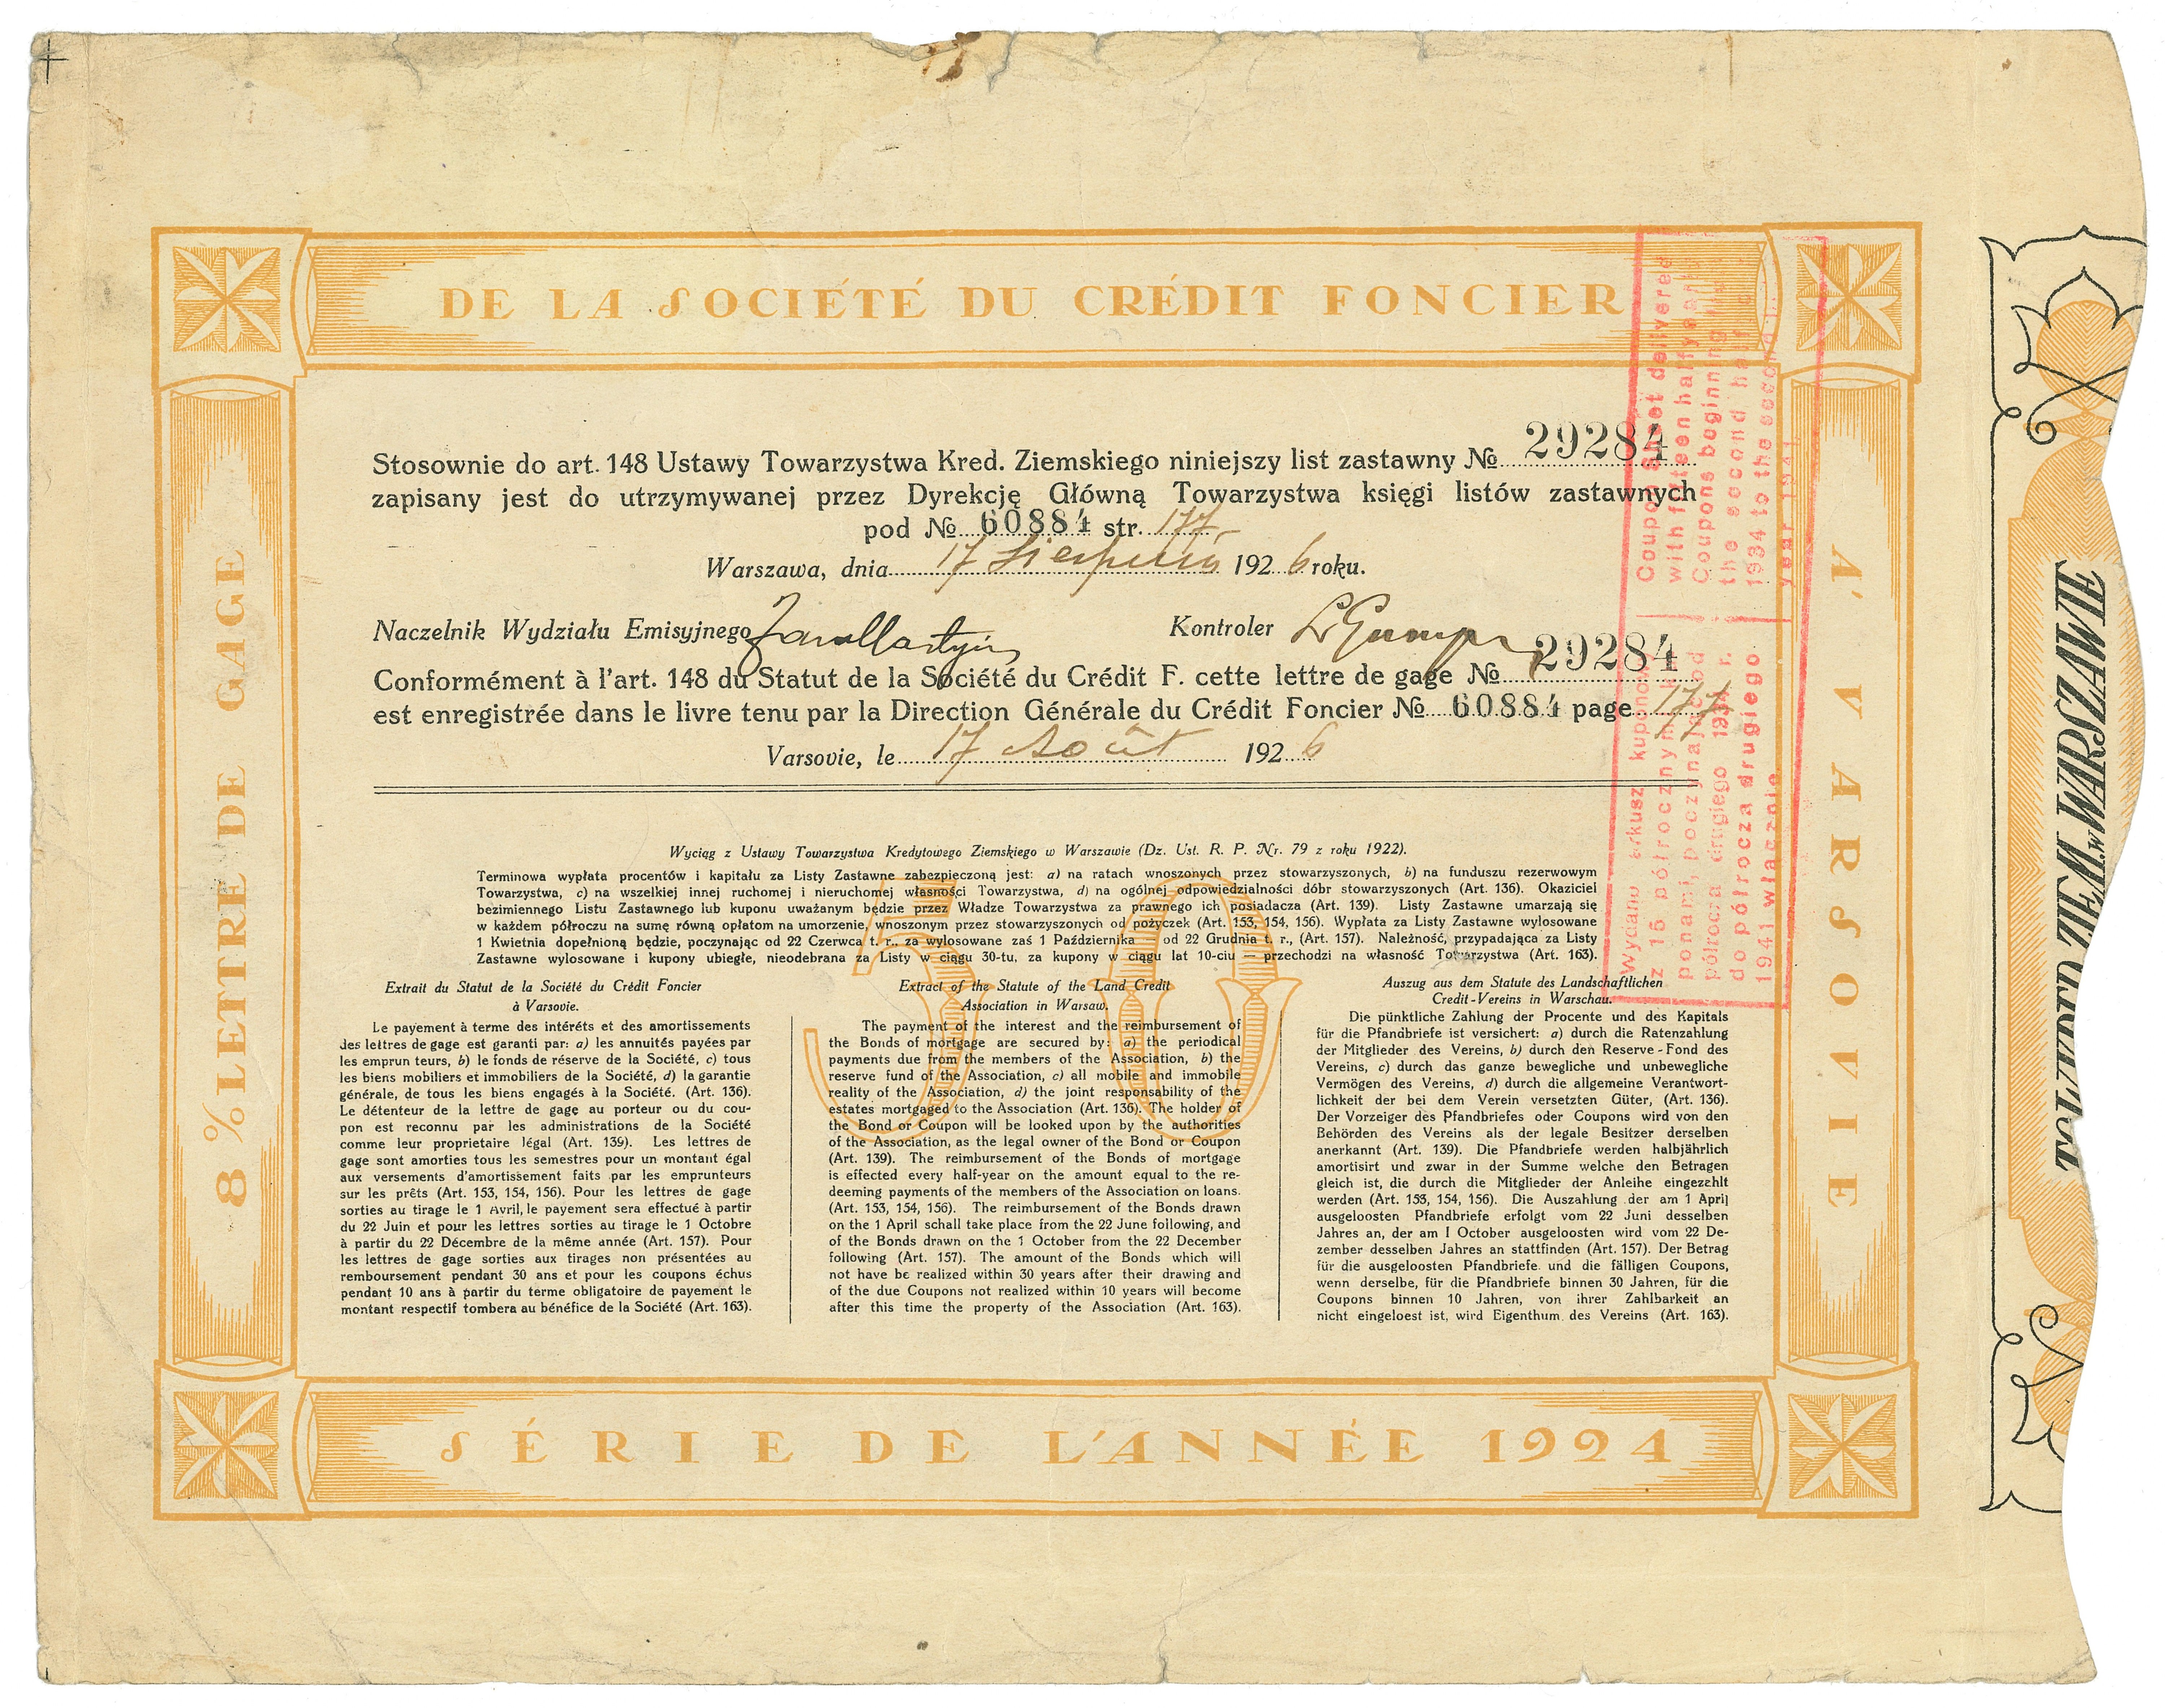 DE LA SOCIÉTÉ DU CRÉDIT FONCIER
8 % LETTRE DE GAGE
À VARSOVIE
Stosownie do art. 148 Ustawy Towarzystwa Kred. Ziemskiego niniejszy list zastawny № 29284
zapisany jest do utrzymywanej przez Dyrekcję Główną Towarzystwa księgi listów zastawnych
pod № 60884 str. 177
Warszawa, dnia 17 Sierpnia 1926 roku.
Naczelnik Wydziału Emisyjnego
Kontroler
Conformément à l'art. 148 du Statut de la Société du Crédit F. cette lettre de gage № 29284
est enregistrée dans le livre tenu par la Direction Générale du Crédit Foncier № 60884 page 177
Varsovie, le 17 Août 1926
Wyciąg z Ustawy Towarzystwa Kredytowego Ziemskiego w Warszawie (Dz. Ust. R. P. Nr. 79 z roku 1922).
Terminowa wypłata procentów i kapitału za Listy Zastawne zabezpieczoną jest: a) na ratach wnoszonych przez stowarzyszonych, b) na funduszu rezerwowym
Towarzystwa, c) na wszelkiej innej ruchomej i nieruchomej własności Towarzystwa, d) na ogólnej odpowiedzialności dóbr stowarzyszonych (Art. 136). Okaziciel
bezimiennego Listu Zastawnego lub kuponu uważanym będzie przez Władze Towarzystwa za prawnego ich posiadacza (Art. 139). Listy Zastawne umarzają się
w każdem półroczu na sumę równą opłatom na umorzenie, wnoszonym przez stowarzyszonych od pożyczek (Art. 153, 154, 156). Wypłata za Listy Zastawne wylosowane
1 Kwietnia dopełnioną będzie, poczynając od 22 Czerwca t. r., za wylosowane zaś 1 Października — od 22 Grudnia t. r., (Art. 157). Należność, przypadająca za Listy
Zastawne wylosowane i kupony ubiegłe, nieodebrana za Listy w ciągu 30-tu, za kupony w ciągu lat 10-ciu — przechodzi na własność Towarzystwa (Art. 163).
50
Extrait du Statut de la Société du Crédit Foncier
à Varsovie.
Le payement à terme des intéréts et des amortissements
des lettres de gage est garanti par: a) les annuités payées par
les emprun teurs, b) le fonds de réserve de la Société, c) tous
les biens mobiliers et immobiliers de la Société, d) la garantie
générale, de tous les biens engagés à la Société. (Art. 136).
Le détenteur de la lettre de gage au porteur ou du cou-
pon est reconnu par les administrations de la Société
comme leur proprietaire légal (Art. 139). Les lettres de
gage sont amorties tous les semestres pour un montant égal
aux versements d'amortissement faits par les emprunteurs
sur les prêts (Art. 153, 154, 156). Pour les lettres de gage
sorties au tirage le 1 Avril, le payement sera effectué à partir
du 22 Juin et pour les lettres sorties au tirage le 1 Octobre
à partir du 22 Décembre de la même année (Art. 157). Pour
les lettres de gage sorties aux tirages non présentées au
remboursement pendant 30 ans et pour les coupons échus
pendant 10 ans à partir du terme obligatoire de payement le
montant respectif tombera au bénéfice de la Société (Art. 163).
Extract of the Statute of the Land Credit
Association in Warsaw.
The payment of the interest and the reimbursement of
the Bonds of mortgage are secured by: a) the periodical
payments due from the members of the Association, b) the
reserve fund of the Association, c) all mobile and immobile
reality of the Association, d) the joint responsability of the
estates mortgaged to the Association (Art. 136). The holder of
the Bond or Coupon will be looked upon by the authorities
of the Association, as the legal owner of the Bond or Coupon
(Art. 139). The reimbursement of the Bonds of mortgage
is effected every half-year on the amount equal to the re-
deeming payments of the members of the Association on loans.
(Art. 153, 154, 156). The reimbursement of the Bonds drawn
on the 1 April schall take place from the 22 June following, and
of the Bonds drawn on the 1 October from the 22 December
following (Art. 157). The amount of the Bonds which will
not have be realized within 30 years after their drawing and
of the due Coupons not realized within 10 years will become
after this time the property of the Association (Art. 163).
Auszug aus dem Statute des Landschaftlichen
Credit-Vereins in Warschau.
Die pünktliche Zahlung der Procente und des Kapitals
für die Pfandbriefe ist versichert: a) durch die Ratenzahlung
der Mitglieder des Vereins, b) durch den Reserve-Fond des
Vereins, c) durch das ganze bewegliche und unbewegliche
Vermögen des Vereins, d) durch die allgemeine Verantwort-
lichkeit der bei dem Verein versetzten Güter, (Art. 136).
Der Vorzeiger des Pfandbriefes oder Coupons wird von den
Behörden des Vereins als der legale Besitzer derselben
anerkannt (Art. 139). Die Pfandbriefe werden halbjährlich
amortisirt und zwar in der Summe welche den Betragen
gleich ist, die durch die Mitglieder der Anleihe eingezehlt
werden (Art. 153, 154, 156). Die Auszahlung der am 1 April
ausgeloosten Pfandbriefe erfolgt vom 22 Juni desselben
Jahres an, der am 1 October ausgeloosten wird vom 22 De-
zember desselben Jahres an stattfinden (Art. 157). Der Betrag
für die ausgeloosten Pfandbriefe und die fälligen Coupons,
wenn derselbe, für die Pfandbriefe binnen 30 Jahren, für die
Coupons binnen 10 Jahren, von ihrer Zahlbarkeit an
nicht eingeloest ist, wird Eigenthum des Vereins (Art. 163).
SÉRIE DE L'ANNÉE 1924
Wydano arkusz kuponowy
z 15 półrocznymi ku-
ponami, poczynając od
półrocza drugiego 1934 r.
do półrocza drugiego
1941 włącznie.
Coupon Sheet delivered
with fifteen halfyearly
Coupons beginning
the second half
1934 to the second
year 1941
ZIEM. w WARSZAWIE